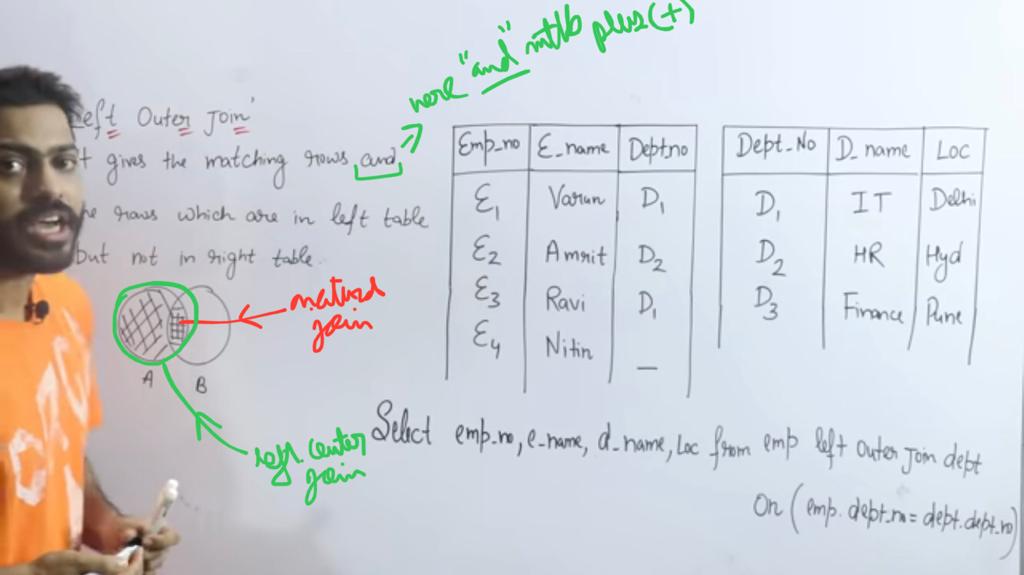 "and" mtlb plus (+)
Left Outer Join'
It gives the matching rows and
the rows which are in left table
but not in right table.
natural
join
A B
left outer
join
Emp_no E_name Dept_no
E1 Varun D1
E2 Amrit D2
E3 Ravi D1
E4 Nitin —
Dept_No D_name Loc
D1 IT Delhi
D2 HR Hyd
D3 Finance Pune
Select emp_no, e_name, d_name, Loc from emp left outer join dept
On (emp.dept_no = dept.dept_no)